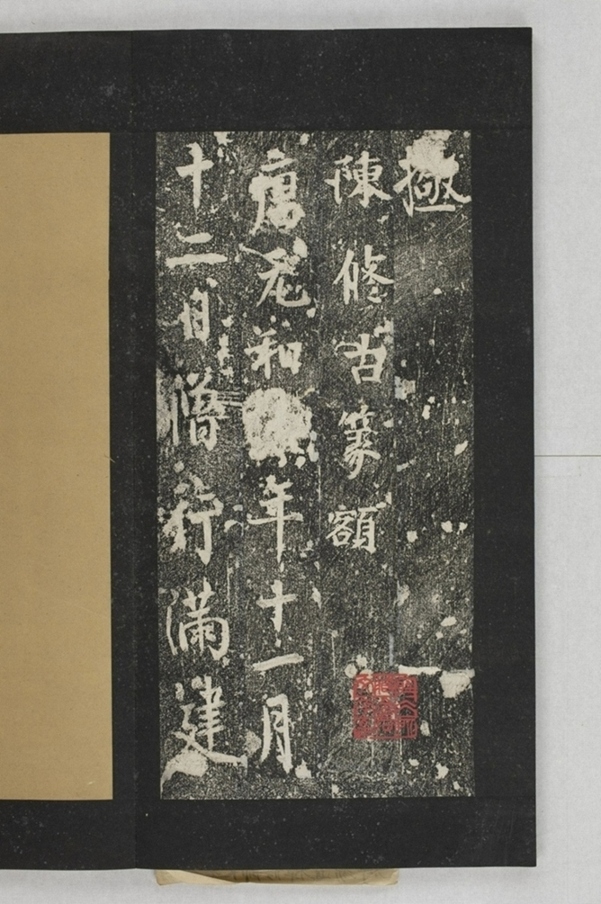 極
陳修古篆額
唐元和年十一月
十二日僧行滿建